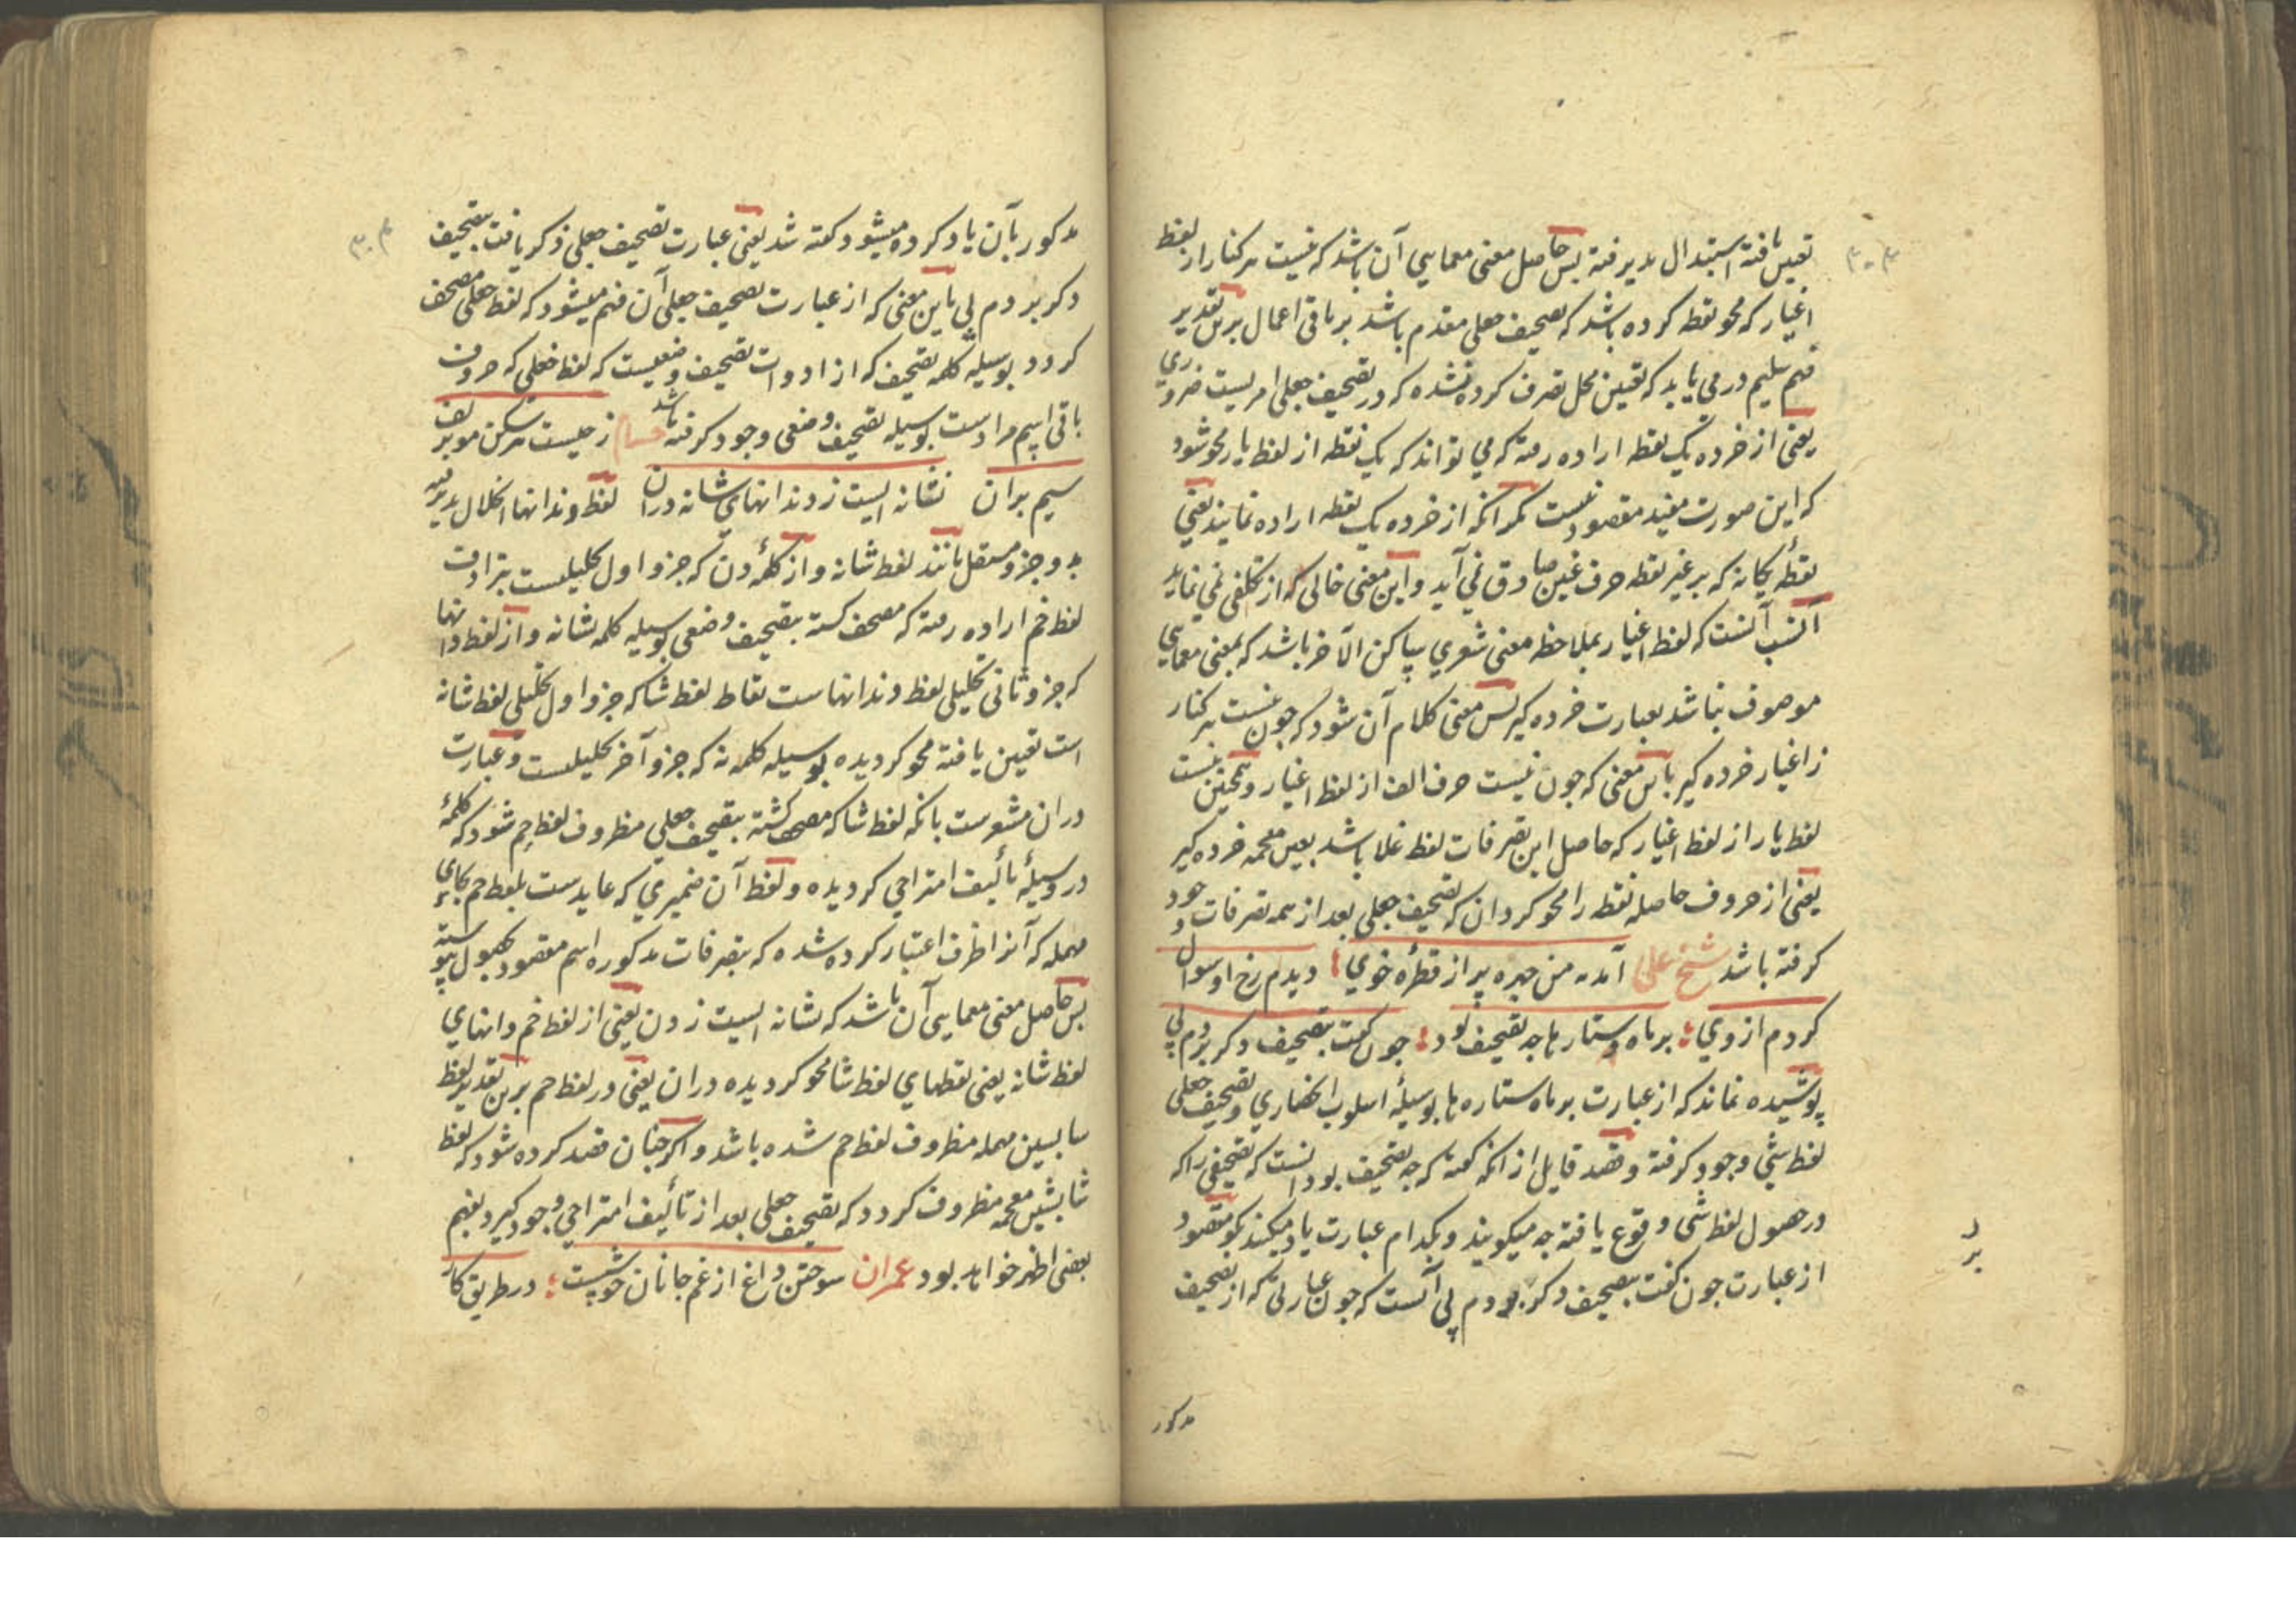 ۳۰۳
تعیین یافته استبدال پذیرفته پس حاصل معنی معمایی آن باشد که نیست بر کنار از لفظ
اغیار که محو نقطه کرده باشد که تصحیف جعلی مقدم باشد بر باقی اعمال برین تقدیر
فهم سلیم در می یابد که تعیین محل تصرف کرده نشده که در تصحیف جعلی امریست ضروری
یعنی از خرده یک نقطه اراده رفته که می تواند که یک نقطه از لفظ یار محو شود
که این صورت مفید مقصود نیست مگر انکه از خرده یک نقطه اراده نمایند یعنی
نقطهٔ یکانه که بر غیر نقطه حرف غین صادق نمی آید و این معنی خالی که از تکلفی نمی نماید
انسب آنست که لفظ اغیار بملاحظه معنی شعری بساکن الآخر باشد که بمعنی معمایی
موصوف نباشد بعبارت خرده کیر پس معنی کلام آن شود که چون نیست بر کنار
ز اغیار خرده کیر باین معنی که چون نیست حرف الف از لفظ اغیار و همچنین نیست
لفظ یار از لفظ اغیار که حاصل این تصرفات لفظ غلا باشد بغین معجمه خرده کیر
یعنی از حروف حاصله نقطه را محو کردان که تصحیف جعلی بعد از همه تصرفات وجود
کرفته باشد شیخ علی آمد مه من چهره پر از قطره خوی ؛ دیدم رخ او سوال
کردم از وی ؛ بر ماه ستارها چه تصحیف بود ؛ چون گفت بتصحیف دکر بردم پی
پوشیده نماند که از عبارت بر ماه ستاره ها بوسیلهٔ اسلوب انحصاری و تصحیف جعلی
لفظ شی وجود کرفته و قصد قایل از انکه گفته که چه تصحیف بود انست که تصحیفی را که
در حصول لفظ شی وقوع یافته چه میکویند و بکدام عبارت یاد میکنند بکو مقصود
از عبارت چون گفت بتصحیف دکر بردم پی آنست که چون عبارتی که از تصحیف
مذکور
۳۰۴
مذکور بآن یاد کرده میشود کفته شد یعنی عبارت تصحیف جعلی ذکر یافت بتصحیف
دکر بردم پی باین معنی که از عبارت تصحیف جعلی آن فهم میشود که لفظ جعلی مصحف
کردد بوسیله کلمه تصحیف که از ادوات تصحیف وضعیست که لفظ خعلی که حروف
باقی اسم مرادست بوسیله تصحیف وضعی وجود کرفته باشد حسام ز چیست هر سکن مو بر لف
سیم بران نشانه ایست ز دندانهای شانه دران لفظ دندانها انحلال پذیرفته
بدو جزو مستقل مانند لفظ شانه و از کلمهٔ دن که جزو اول تحلیلیست بترادف
لفظ خم اراده رفته که مصحف کشته بتصحیف وضعی بوسیله کلمه نشانه و از لفظ دانها
که جزو ثانی تحلیلی لفظ دندانهاست نقاط لفظ شا که جزو اول تحلیلی لفظ شانه
است تعیین یافته محو کردیده بوسیله کلمه نه که جزو آخر تحلیلیست و عبارت
دران مشعرست بانکه لفظ شا که مصحف کشته بتصحیف جعلی مظروف لفظ حم شود که کلمهٔ
در وسیلهٔ تألیف امتزاجی کردیده و لفظ آن ضمیری که عایدست بلفظ حم بحای
مهمله که آنرا ظرف اعتبار کرده شده که بتصرفات مذکوره اسم مقصود بحصول پیوسته
پس حاصل معنی معمایی آن باشد که نشانه ایست ز دن یعنی از لفظ خم دانهای
لفظ شانه یعنی نقطهای لفظ شا محو کردیده دران یعنی در لفظ حم برین تقدیر لفظ
سا بسین مهمله مظروف لفظ حم شده باشد و اکر چنان قصد کرده شود که لفظ
شا بشین معجمه مظروف کردد که تصحیف جعلی بعد از تألیف امتزاجی وجود کیرد بفهم
بعضی اظهر خواهد بود عمران سوختن داغ از غم جانان خوشست ؛ در طریق